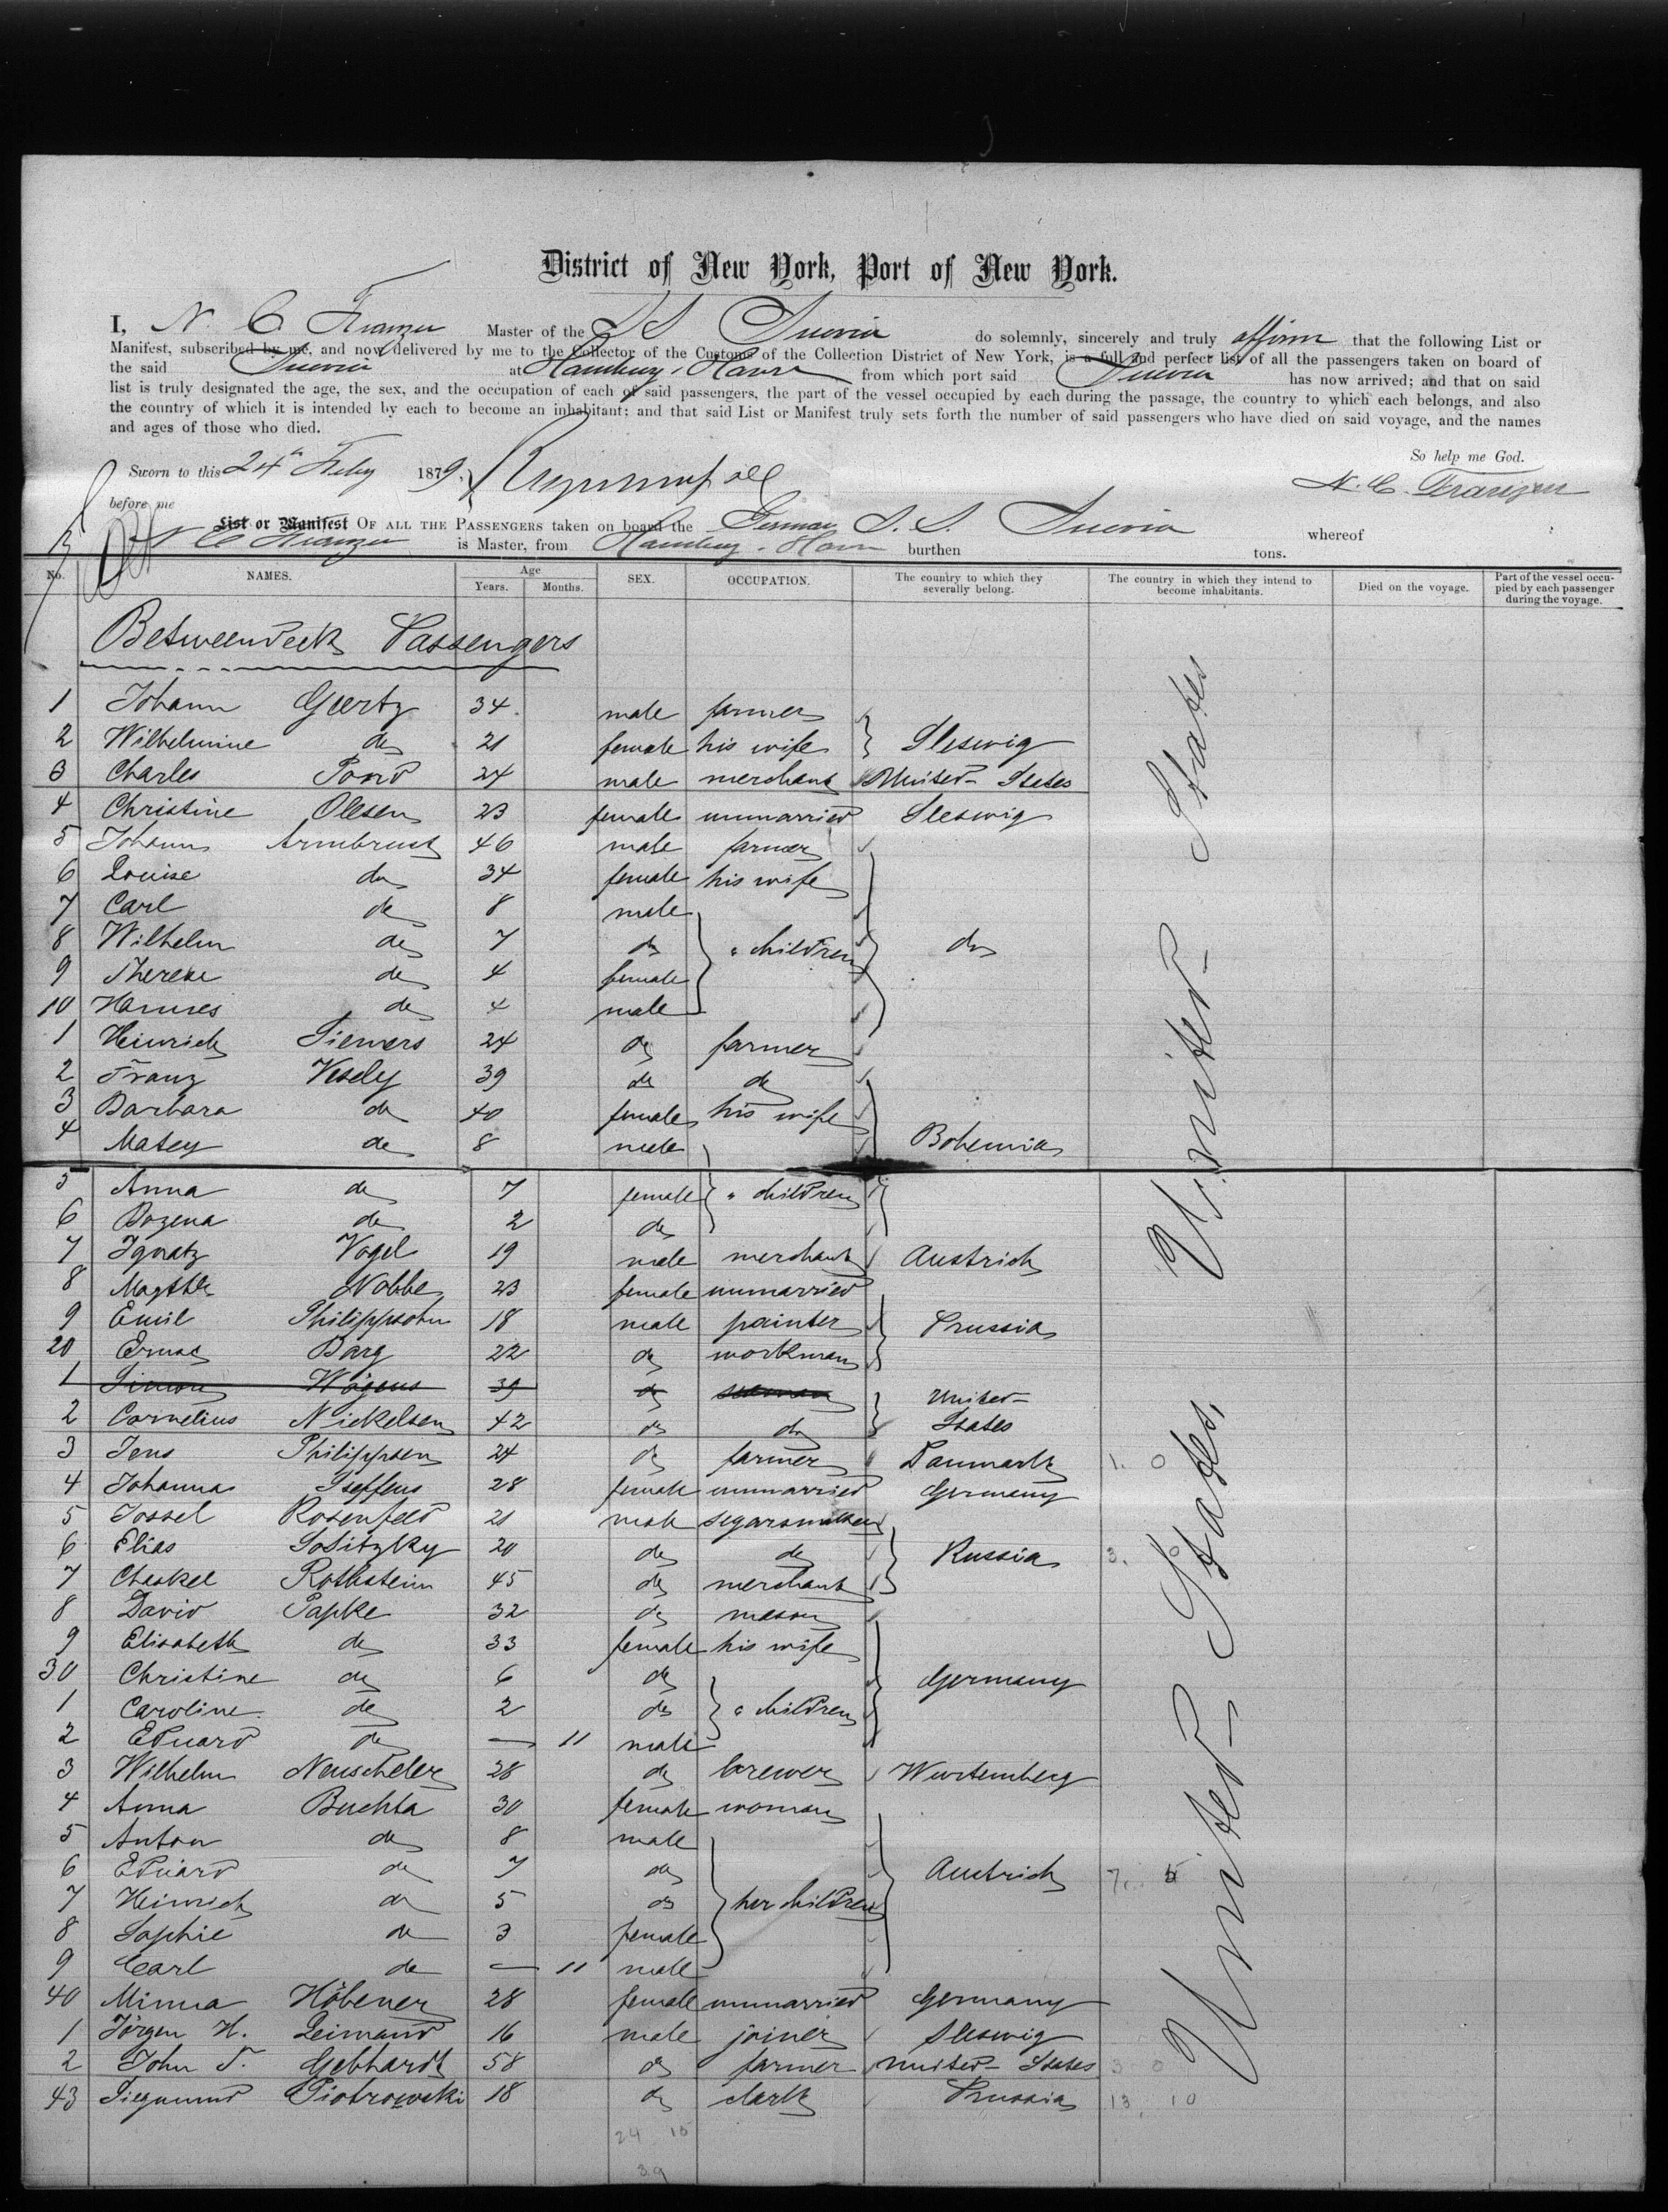 District of New York, Port of New York.
I, N. C. Franzen Master of the S S Suevia do solemnly, sincerely and truly affirm that the following List or
Manifest, subscribed by me, and now delivered by me to the Collector of the Customs of the Collection District of New York, is a full and perfect list of all the passengers taken on board of
the said Suevia at Hamburg, Havre from which port said Suevia has now arrived; and that on said
list is truly designated the age, the sex, and the occupation of each of said passengers, the part of the vessel occupied by each during the passage, the country to which each belongs, and also
the country of which it is intended by each to become an inhabitant; and that said List or Manifest truly sets forth the number of said passengers who have died on said voyage, and the names
and ages of those who died.
So help me God.
Sworn to this 24th Feby 1879.
N. C. Franzen
before me
List or Manifest OF ALL THE PASSENGERS taken on board the German S. S. Suevia whereof
N C Franzen is Master, from Hamburg. Havre burthen tons.
No. NAMES. Age Years. Months. SEX. OCCUPATION. The country to which they severally belong. The country in which they intend to become inhabitants. Died on the voyage. Part of the vessel occupied by each passenger during the voyage.
Betweendeck Passengers
United States
1 Johann Geertz 34 male farmer
2 Wilhelmine do 21 female his wife Sleswig
3 Charles Pond 24 male merchant United States
4 Christine Olesen 23 female unmarried Sleswig
5 Johann Armbrust 46 male farmer
6 Louise do 34 female his wife
7 Carl do 8 male
8 Wilhelm do 7 do " children do
9 Therese do 4 female
10 Hannes do 4 male
1 Heinrich Siewers 24 do farmer
2 Franz Vesely 39 do do
3 Barbara do 40 female his wife
4 Matey do 8 male Bohemia
5 Anna do 7 female " children
6 Bozena do 2 do
7 Ignatz Vogel 19 male merchant Austrich
8 Nobbe 23 female unmarried
9 Emil Philippsohn 18 male painter Prussia
20 Ernas Barg 22 do workman
1 Simon Wögens 39 do seeman United
2 Cornelius Nickelsen 42 do do States
3 Jens Philippsen 24 do farmer Danmark 1. 0
4 Johanna Steffens 28 female unmarried Germany
5 Jossel Rosenfeld 21 male segarsmaker
6 Elias 20 do do Russia 3. 0
7 Cheskel Rothstein 45 do merchant
8 David Papke 32 do mason
9 Elisabeth do 33 female his wife
30 Christine do 6 do Germany
1 Caroline do 2 do " children
2 Eduard do — 11 male
3 Wilhelm Neuscheler 28 do brewer Wurtemberg
4 Anna Buchta 30 female woman
5 Anton do 8 male
6 Eduard do 7 do Austrich 7. 5
7 Heinrich do 5 do her children
8 Sophie do 3 female
9 Carl do — 11 male
40 Minna Höbener 28 female unmarried Germany
1 Jörgen H. Leimand 16 male joiner Sleswig
2 John T. Gebhardt 58 do farmer United States 3 0
43 Siegmund Piotrowski 18 do clark Prussia 13. 10
United States,
24 15
39